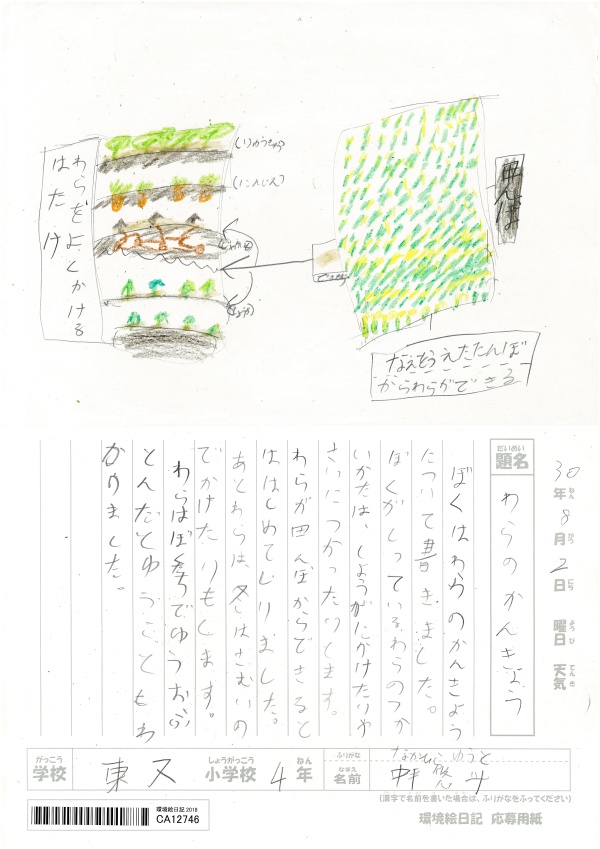 わらをよくかける
はたけ
(りゅうきゅう)
(にんじん)
(しょうが)
田んぼ
なえをうえたたんぼ
からわらができる
30年8月2日 曜日 天気
ねん
がつ
にち
ようび
てんき
だいめい
題名
わらのかんきょう
ぼくはわらのかんきょう
について書きました。
ぼくがしっているわらのつか
いかたは、しょうがにかけたりや
さいにつかったりします。
わらが田んぼからできると
ははじめてしりました。
あとわらは、冬はさむいの
でかけたりもします。
わらはぼくたちでゆうおふ
とんだとゆうこともわ
かりました。
がっこう
学校
東又
しょうがっこう
小学校
4年
ねん
ふりがな
なかひら ゆうと
なまえ
名前
(漢字で名前を書いた場合は、ふりがなをふってください)
環境絵日記2018
CA12746
環境絵日記 応募用紙